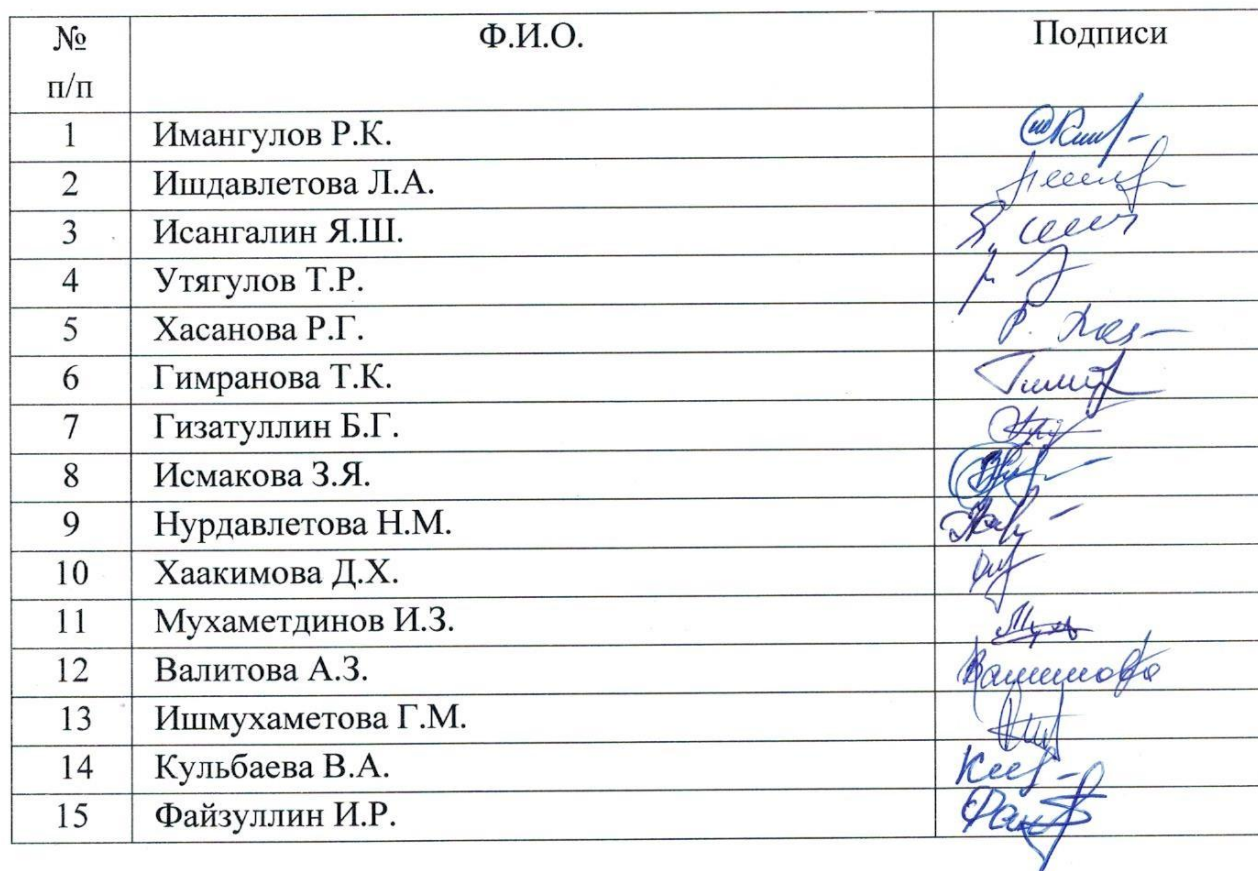 № п/п Ф.И.О. Подписи
1 Имангулов Р.К.
2 Ишдавлетова Л.А.
3 Исангалин Я.Ш.
4 Утягулов Т.Р.
5 Хасанова Р.Г.
6 Гимранова Т.К.
7 Гизатуллин Б.Г.
8 Исмакова З.Я.
9 Нурдавлетова Н.М.
10 Хаакимова Д.Х.
11 Мухаметдинов И.З.
12 Валитова А.З.
13 Ишмухаметова Г.М.
14 Кульбаева В.А.
15 Файзуллин И.Р.